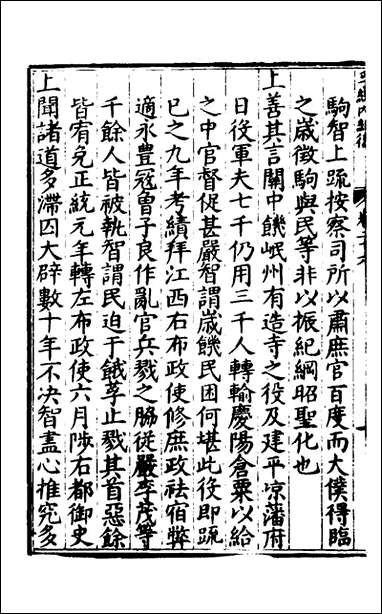 駒智上疏按察司所以肅庶官百度而大僕得臨
之歲徵駒與民等非以振紀綱昭聖化也
上善其言關中饑岷州有造寺之役及建平凉藩府
日役軍夫七千仍用三千人轉輸慶陽倉粟以給
之中官督促甚嚴智謂歲饑民困何堪此役即疏
已之九年考績拜江西右布政使修庶政祛宿弊
適永豊冦曾子良作亂官兵戮之脇從嚴季茂等
千餘人皆被執智謂民迫于餓莩止戮其首惡餘
皆宥免正統元年轉左布政使六月陟右都御史
上聞諸道多滯囚大辟數十年不决智盡心推究多